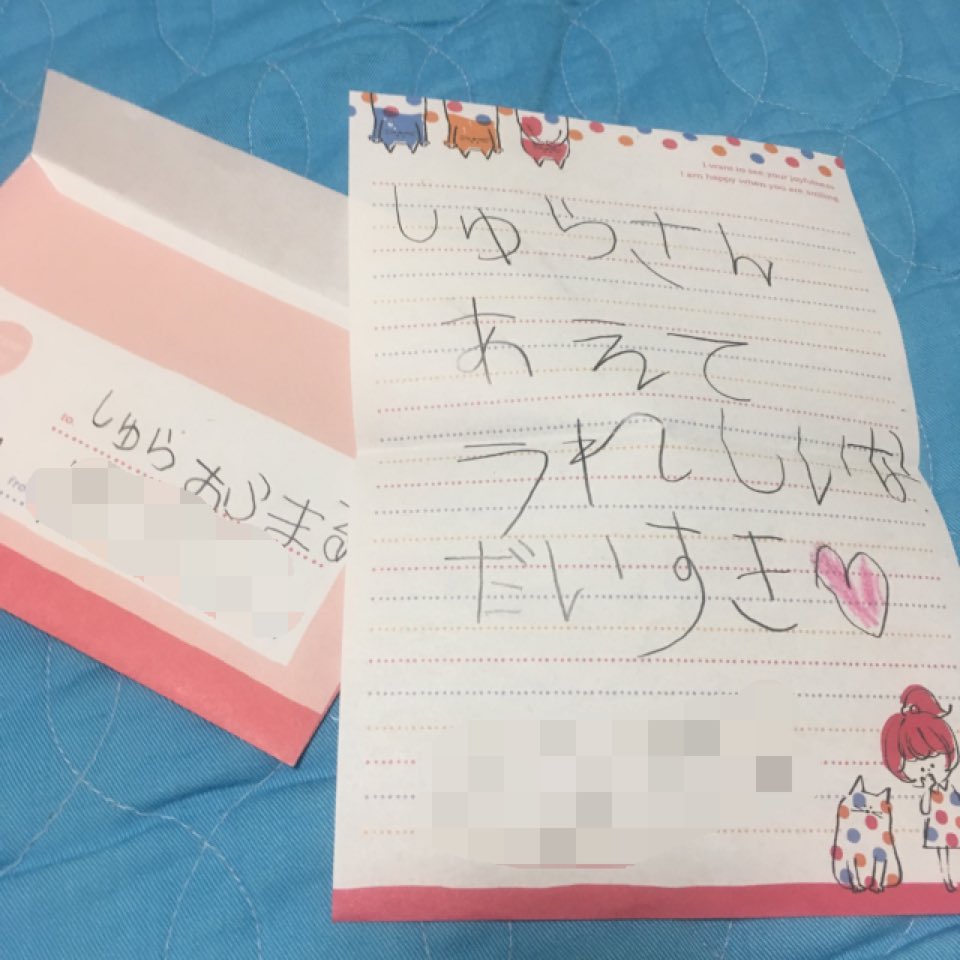 I want to see your joyfulness
I am happy when you are smiling
しゅらさん
あえて
うれしいな
だいすき
to.
しゅら おらまる